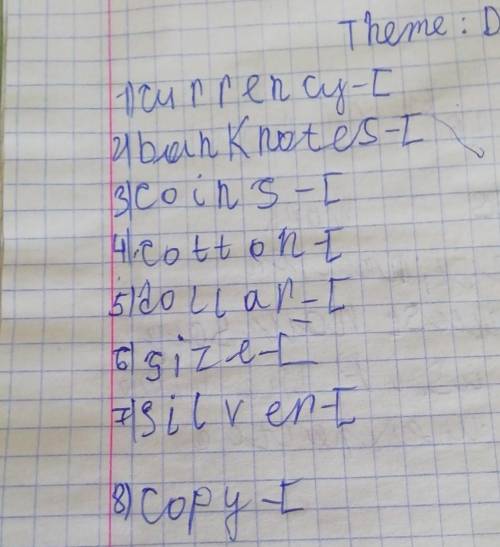 Theme: D
1) currency-[
2) banknotes-[
3) coins-[
4) cotton-[
5) dollar-[
6) size-[
7) silver-[
8) copy-[